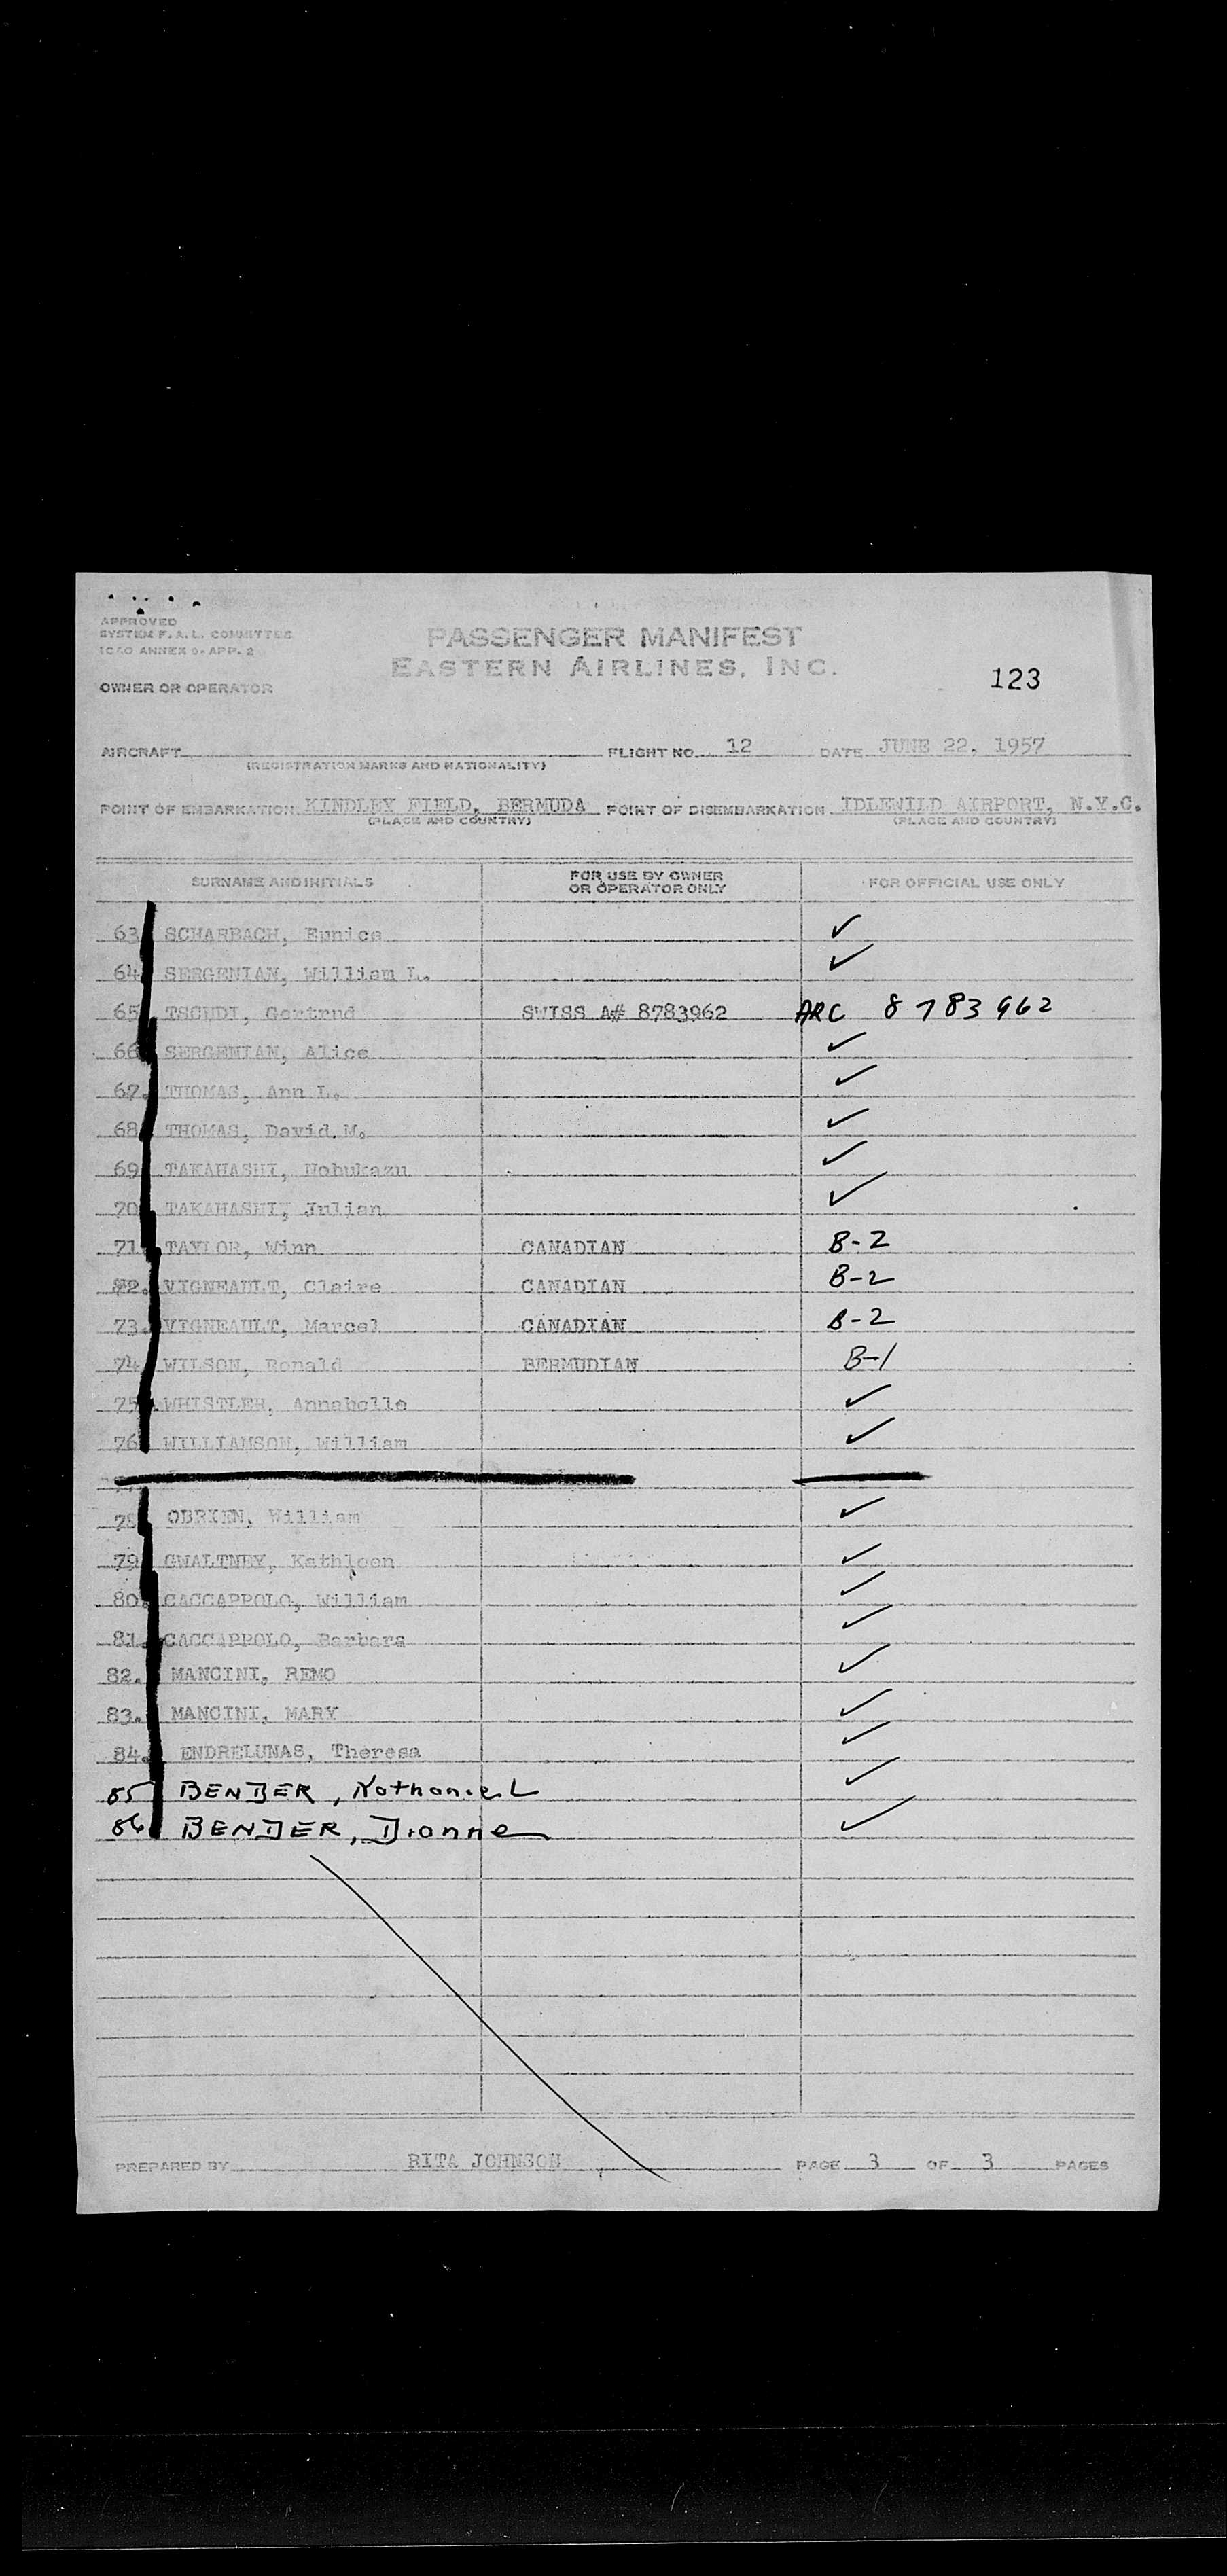 APPROVED
SYSTEM F.A.L. COMMITTEE
ICAO ANNEX 9-APP. 2
PASSENGER MANIFEST
EASTERN AIRLINES, INC.
123
OWNER OR OPERATOR
AIRCRAFT FLIGHT NO. 12 DATE JUNE 22, 1957
(REGISTRATION MARKS AND NATIONALITY)
POINT OF EMBARKATION KINDLEY FIELD, BERMUDA POINT OF DISEMBARKATION IDLEWILD AIRPORT, N.Y.C.
(PLACE AND COUNTRY) (PLACE AND COUNTRY)
SURNAME AND INITIALS FOR USE BY OWNER OR OPERATOR ONLY FOR OFFICIAL USE ONLY
63 SCHARBACH, Eunice ✓
64 SERGENIAN, William L. ✓
65 TSCUDI, Gertrud SWISS A# 8783962 ARC 8783962
66 SERGENIAN, Alice ✓
67. THOMAS, Ann L. ✓
68 THOMAS, David M. ✓
69 TAKAHASHI, Nobukazu ✓
70 TAKAHASHI, Julian ✓
71. TAYLOR, Winn CANADIAN B-2
72. VIGNEAULT, Claire CANADIAN B-2
73. VIGNEAULT, Marcel CANADIAN B-2
74 WILSON, Ronald BERMUDIAN B-1
75 WHISTLER, Annabelle ✓
76 WILLIAMSON, William ✓
78 OBRIEN, William ✓
79 GWALTNEY, Kathleen ✓
80. CACCAPPOLO, William ✓
81. CACCAPPOLO, Barbara ✓
82. MANCINI, REMO ✓
83. MANCINI, MARY ✓
84. ENDRELUNAS, Theresa ✓
85 BENDER, Nathaniel ✓
86 BENDER, Dianne ✓
PREPARED BY RITA JOHNSON PAGE 3 OF 3 PAGES